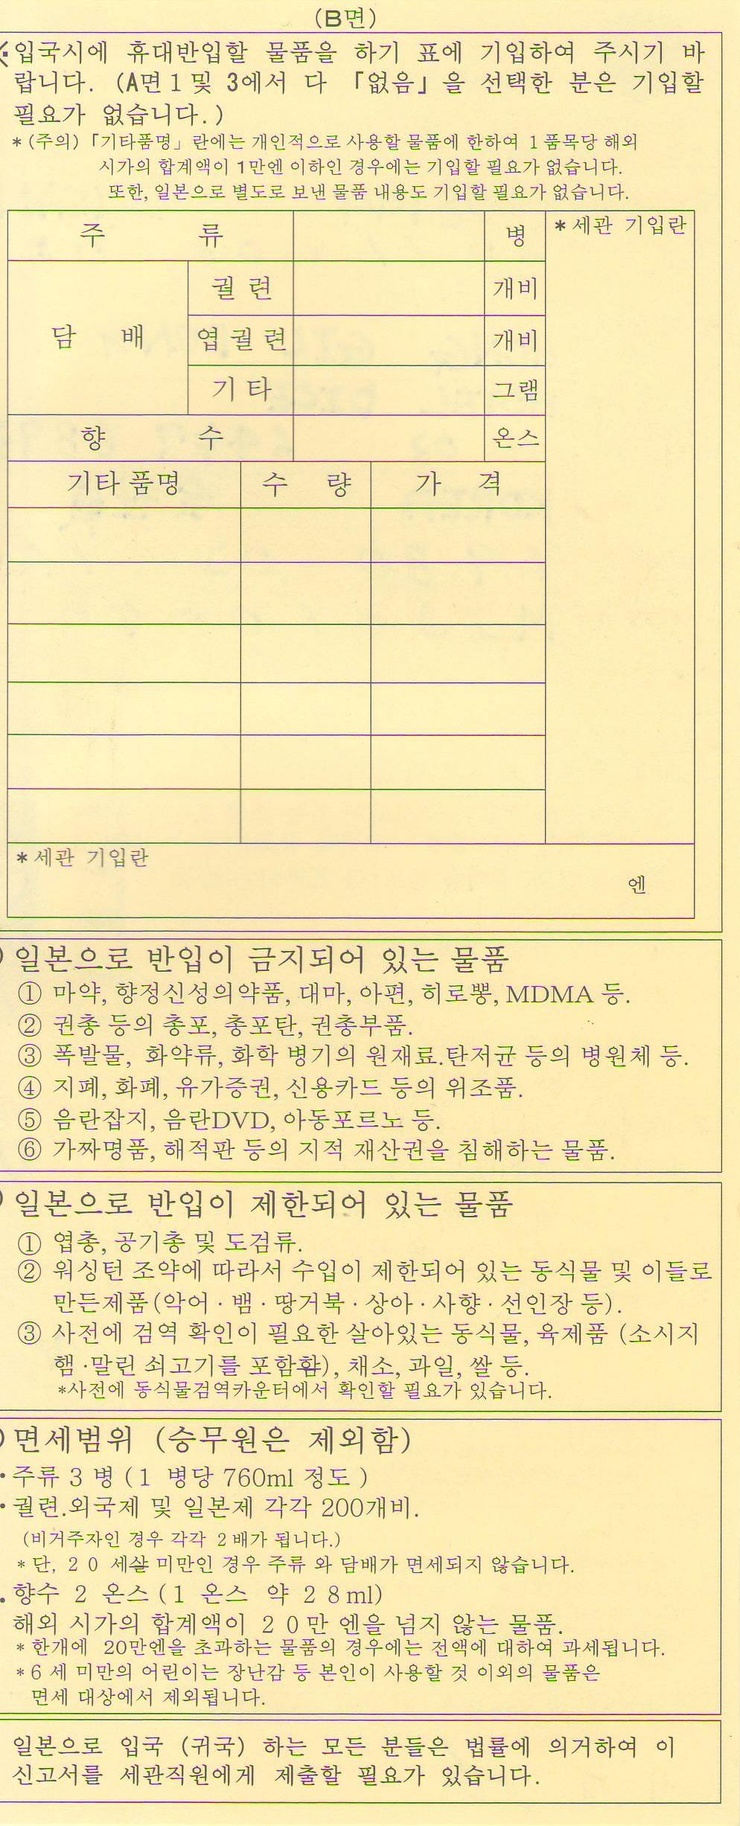 (B면)
※입국시에 휴대반입할 물품을 하기 표에 기입하여 주시기 바
랍니다. (A면 1 및 3에서 다 「없음」을 선택한 분은 기입할
필요가 없습니다.)
*(주의) 「기타품명」란에는 개인적으로 사용할 물품에 한하여 1 품목당 해외
시가의 합계액이 1만엔 이하인 경우에는 기입할 필요가 없습니다.
또한, 일본으로 별도로 보낸 물품 내용도 기입할 필요가 없습니다.
주 류 병 *세관 기입란
궐 련 개비
담 배 엽궐련 개비
기 타 그램
향 수 온스
기타 품명 수 량 가 격
*세관 기입란
엔
일본으로 반입이 금지되어 있는 물품
① 마약, 향정신성의약품, 대마, 아편, 히로뽕, MDMA 등.
② 권총 등의 총포, 총포탄, 권총부품.
③ 폭발물, 화약류, 화학 병기의 원재료.탄저균 등의 병원체 등.
④ 지폐, 화폐, 유가증권, 신용카드 등의 위조품.
⑤ 음란잡지, 음란DVD, 아동포르노 등.
⑥ 가짜명품, 해적판 등의 지적 재산권을 침해하는 물품.
일본으로 반입이 제한되어 있는 물품
① 엽총, 공기총 및 도검류.
② 워싱턴 조약에 따라서 수입이 제한되어 있는 동식물 및 이들로
만든제품(악어 · 뱀 · 땅거북 · 상아 · 사향 · 선인장 등).
③ 사전에 검역 확인이 필요한 살아있는 동식물, 육제품 (소시지
햄 ·말린 쇠고기를 포함함), 채소, 과일, 쌀 등.
*사전에 동식물검역카운터에서 확인할 필요가 있습니다.
면세범위 (승무원은 제외함)
・주류 3 병 (1 병당 760ml 정도)
・궐련.외국제 및 일본제 각각 200개비.
(비거주자인 경우 각각 2배가 됩니다.)
*단, 20 세살 미만인 경우 주류 와 담배가 면세되지 않습니다.
・향수 2 온스 (1 온스 약 28ml)
해외 시가의 합계액이 20만 엔을 넘지 않는 물품.
*한개에 20만엔을 초과하는 물품의 경우에는 전액에 대하여 과세됩니다.
*6 세 미만의 어린이는 장난감 등 본인이 사용할 것 이외의 물품은
면세 대상에서 제외됩니다.
일본으로 입국 (귀국) 하는 모든 분들은 법률에 의거하여 이
신고서를 세관직원에게 제출할 필요가 있습니다.